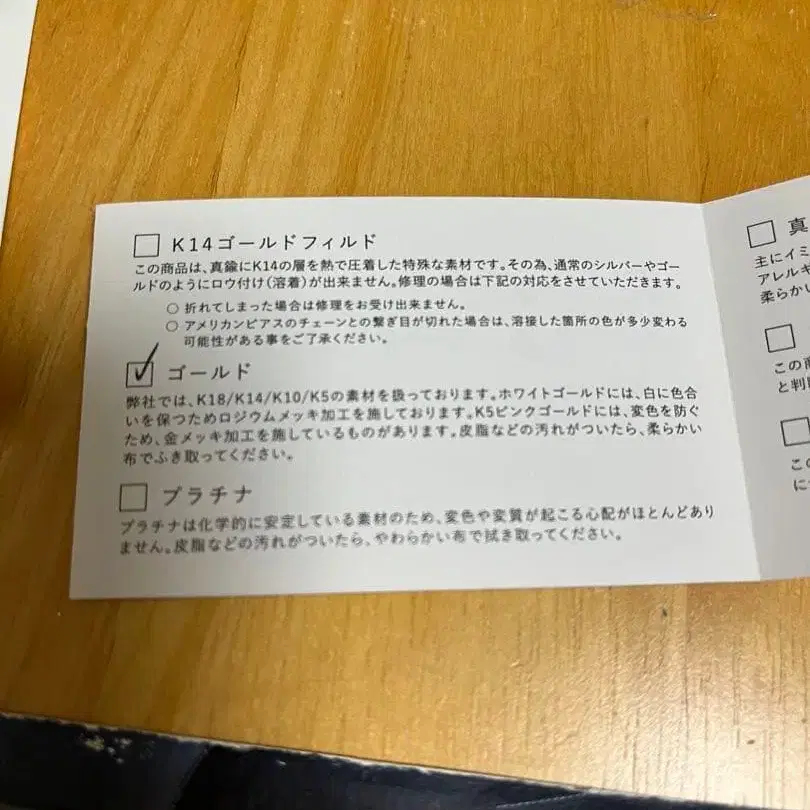 K14ゴールドフィルド
この商品は、真鍮にK14の層を熱で圧着した特殊な素材です。その為、通常のシルバーやゴー
ルドのようにロウ付け(溶着)が出来ません。修理の場合は下記の対応をさせていただきます。
○ 折れてしまった場合は修理をお受け出来ません。
○ アメリカンピアスのチェーンとの繋ぎ目が切れた場合は、溶接した箇所の色が多少変わる
可能性がある事をご了承ください。
ゴールド
弊社では、K18/K14/K10/K5の素材を扱っております。ホワイトゴールドには、白に色合
いを保つためロジウムメッキ加工を施しております。K5ピンクゴールドには、変色を防ぐ
ため、金メッキ加工を施しているものがあります。皮脂などの汚れがついたら、柔らかい
布でふき取ってください。
プラチナ
プラチナは化学的に安定している素材のため、変色や変質が起こる心配がほとんどあり
ません。皮脂などの汚れがついたら、やわらかい布で拭き取ってください。
真
主にイミ
アレルギ
柔らかい
この商
と判
こ
に